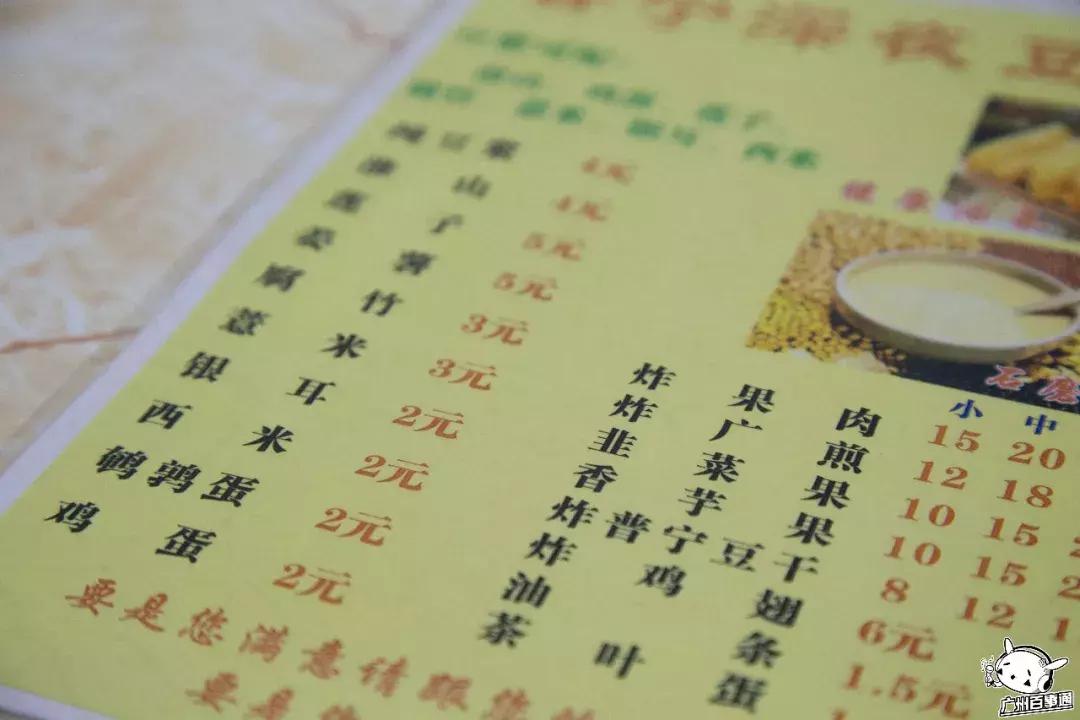 深夜豆
西米
豆浆 4元
淮山 4元
莲子 5元
姜薯 5元
腐竹 3元
薏米 3元
银耳 2元
西米 2元
鹌鹑蛋 2元
鸡蛋 2元
要是您满意请跟您
要是
石磨
小 中
炸果肉 15 20
炸广煎 12 18
韭菜果 10 15
香芋果 10 15
炸普宁豆干 8 12
炸鸡翅 6元
油条 1.5元
茶叶蛋
广州百事通